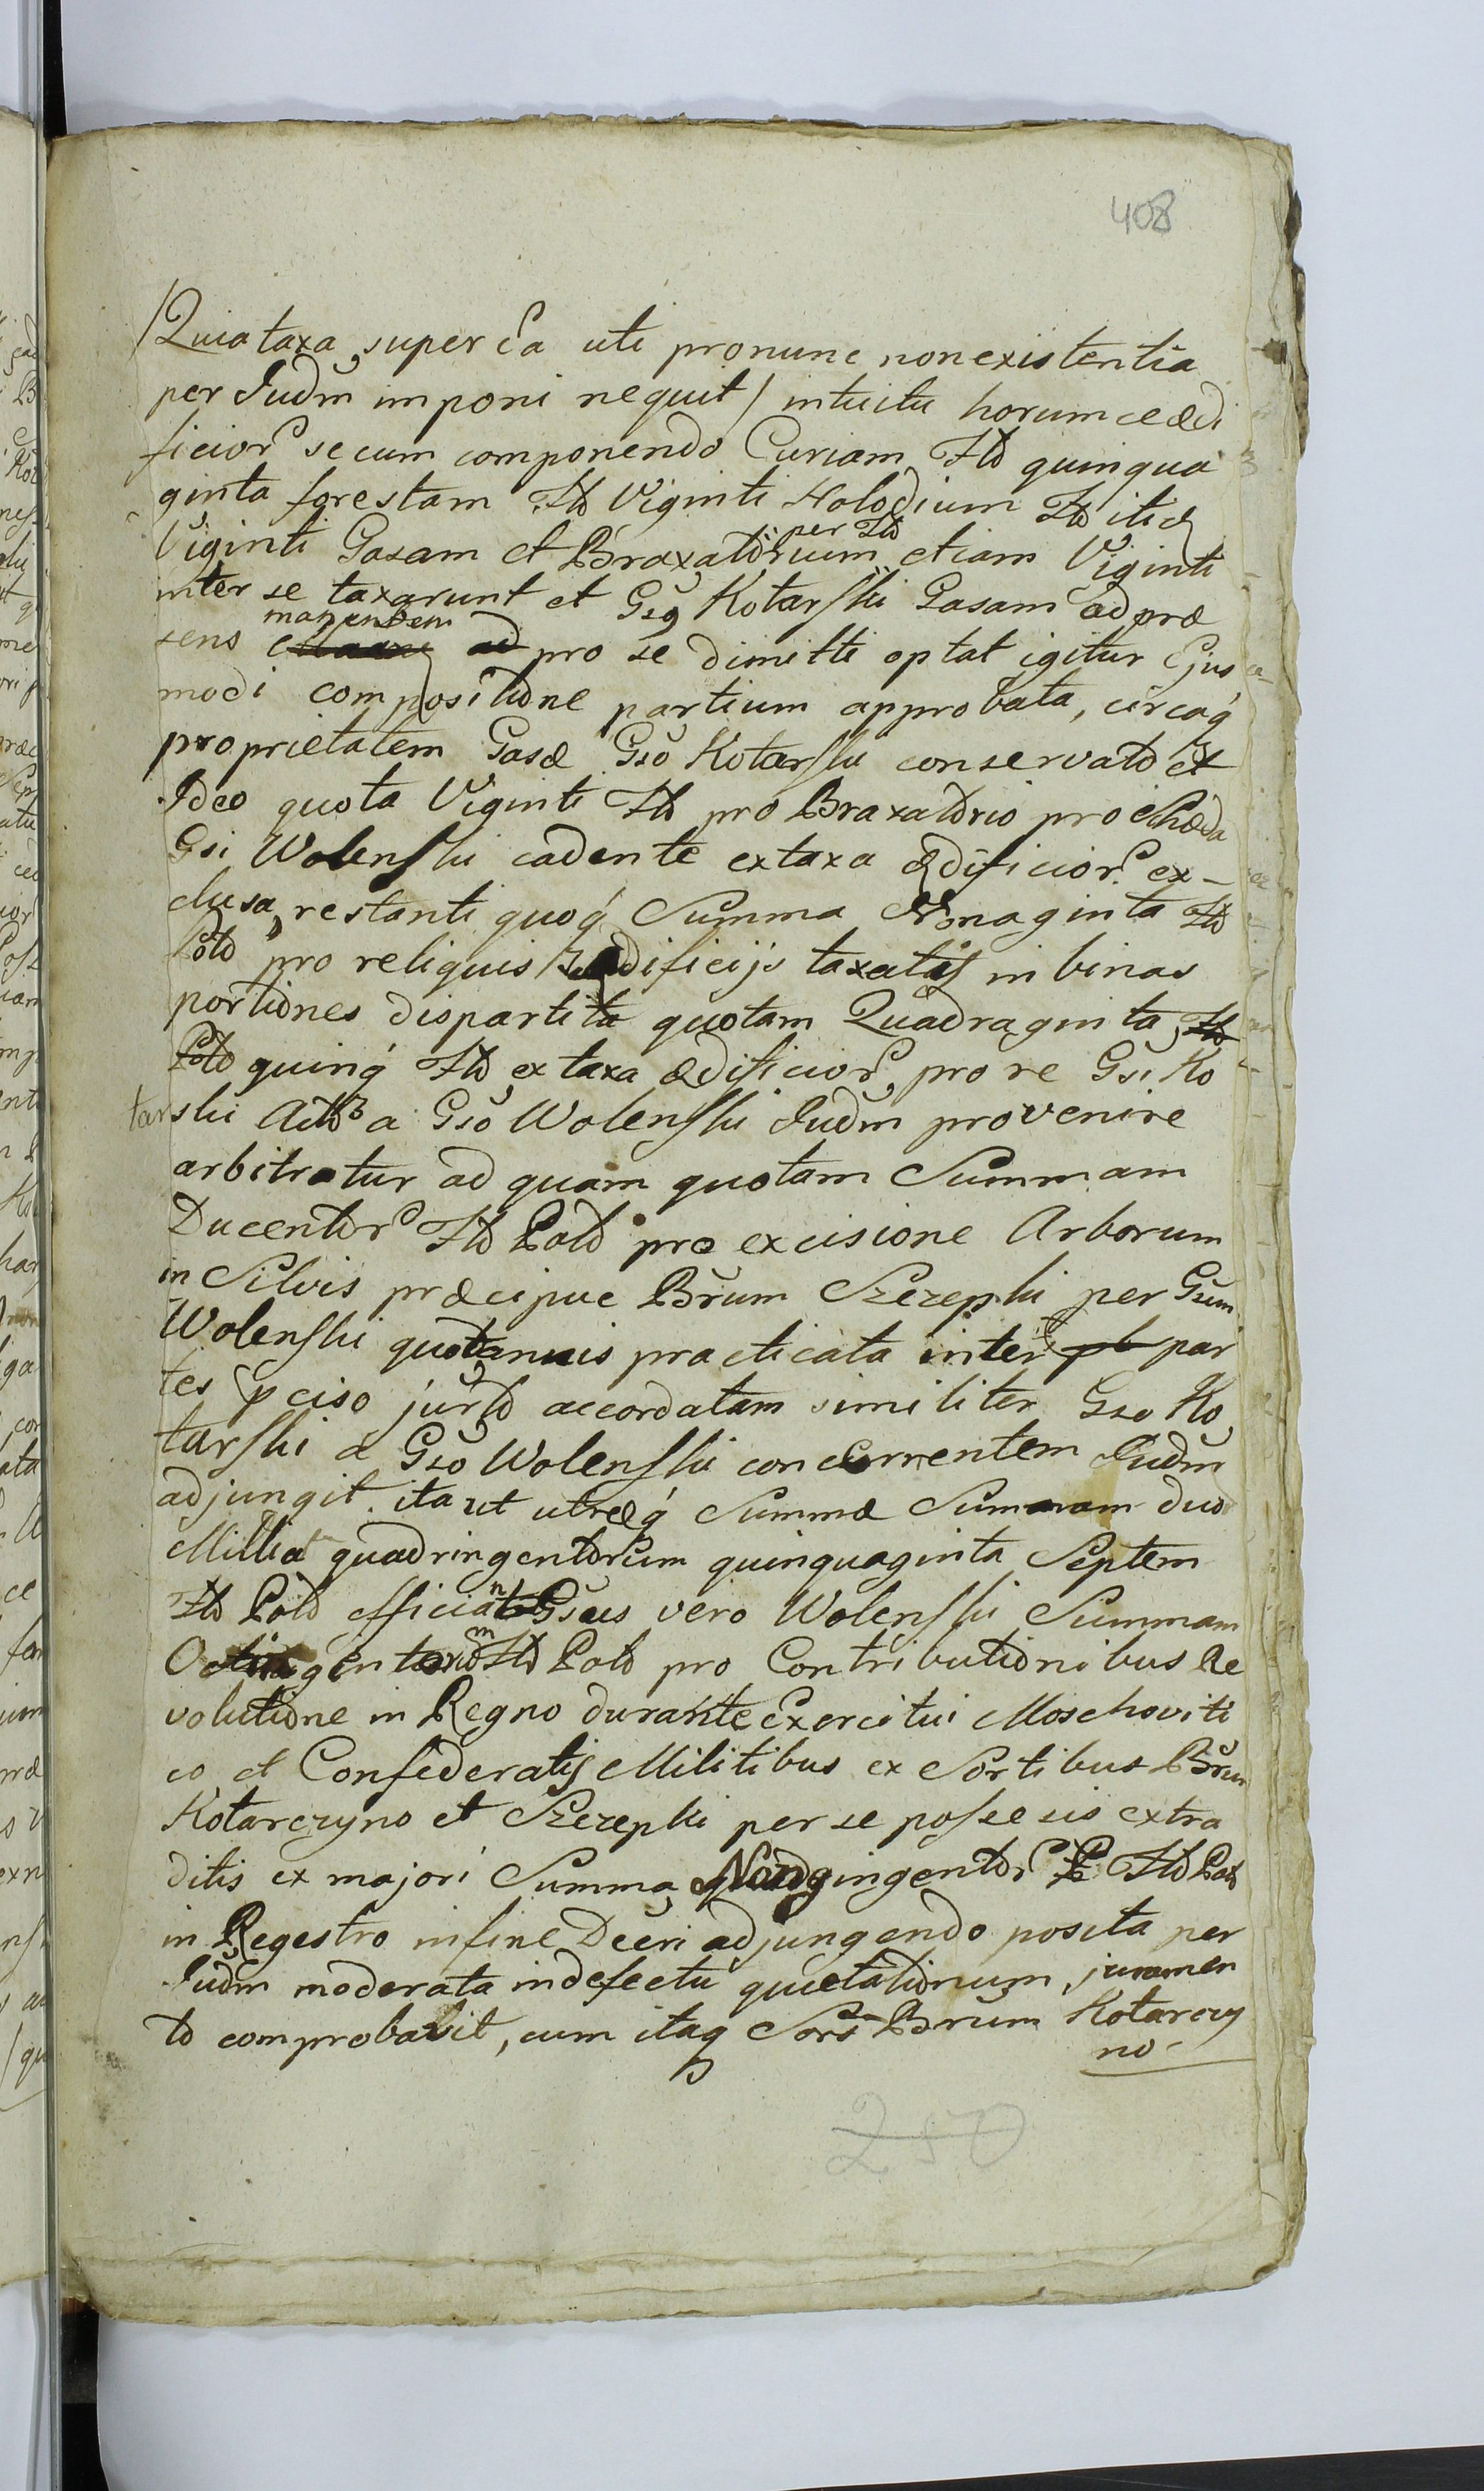 408
/Quia taxa super ea uti pro nunc non existentia
per Iudm imponi nequit / intuitu horumce ædi
ficior secum componendo Curiam Fl quinqua
ginta forestam Fl Viginti Holodium Fl itid
Viginti Gazam et Braxatorium per Fl etiam Viginti
inter se taxarunt et Gsq Kotarski Gasam ad præ
sens manendem pro se dimitti optat igitur Ejus
modi compositione partium approbata, circaq
proprietatem Gasæ Gso Kotarski conservato et
Ideo quota Viginti Fl pro Braxatorio pro Schæda
Gsi Wolenski cadente ex taxa ædificior ex-
clusa, restanti quoq Summa Nonaginta Fl
Pold pro reliquis ædificijs taxatis in binas
portiones dispartita quotam Quadraginta Fl
Pold quinq Fl ex taxa ædificior, pro re Gsi Ko
tarski a Gso Wolenski Iudm provenire
arbitratur ad quam quotam Summam
Ducentor Fl Pold pro excisione Arborum
in Silvis præcipue Brum Szczepki per Gsum
Wolenski quotannis practicata inter pb par
tes pciso accordatam similiter Gso Ko
tarski a Gso Wolenski concurrentem Iudm
adjungit. ita ut utræq Summæ Summam duo
Millia quadringentorum quinquaginta Septem
Fl Pold efficiant Gsus vero Wolenski Summam
Octingentorum Fl Pold pro Contributionibus Re
volutione in Regno durante Exercitui Moschoviti
co et Confederatis Militibus ex Sortibus Brum
Kotarczyno et Szczepki per se possessis extra
ditis ex majori Summa Nongingentor Fl Pold
in Regestro in fine Decri adjungendo posita per
Iudm moderata in defectu quietationum, juramen
to comprobabit, cum itaq Sors Brum Kotarczy
no
250